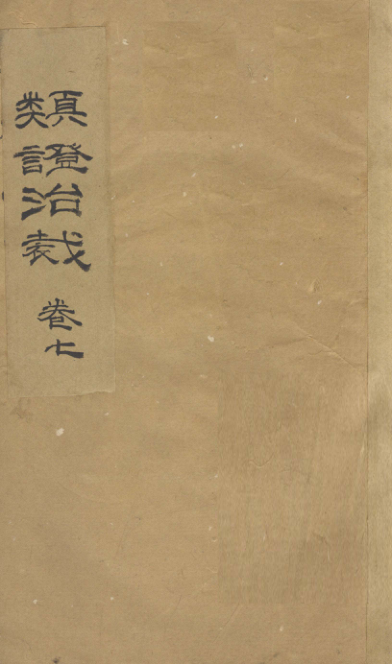 類證治裁 卷七